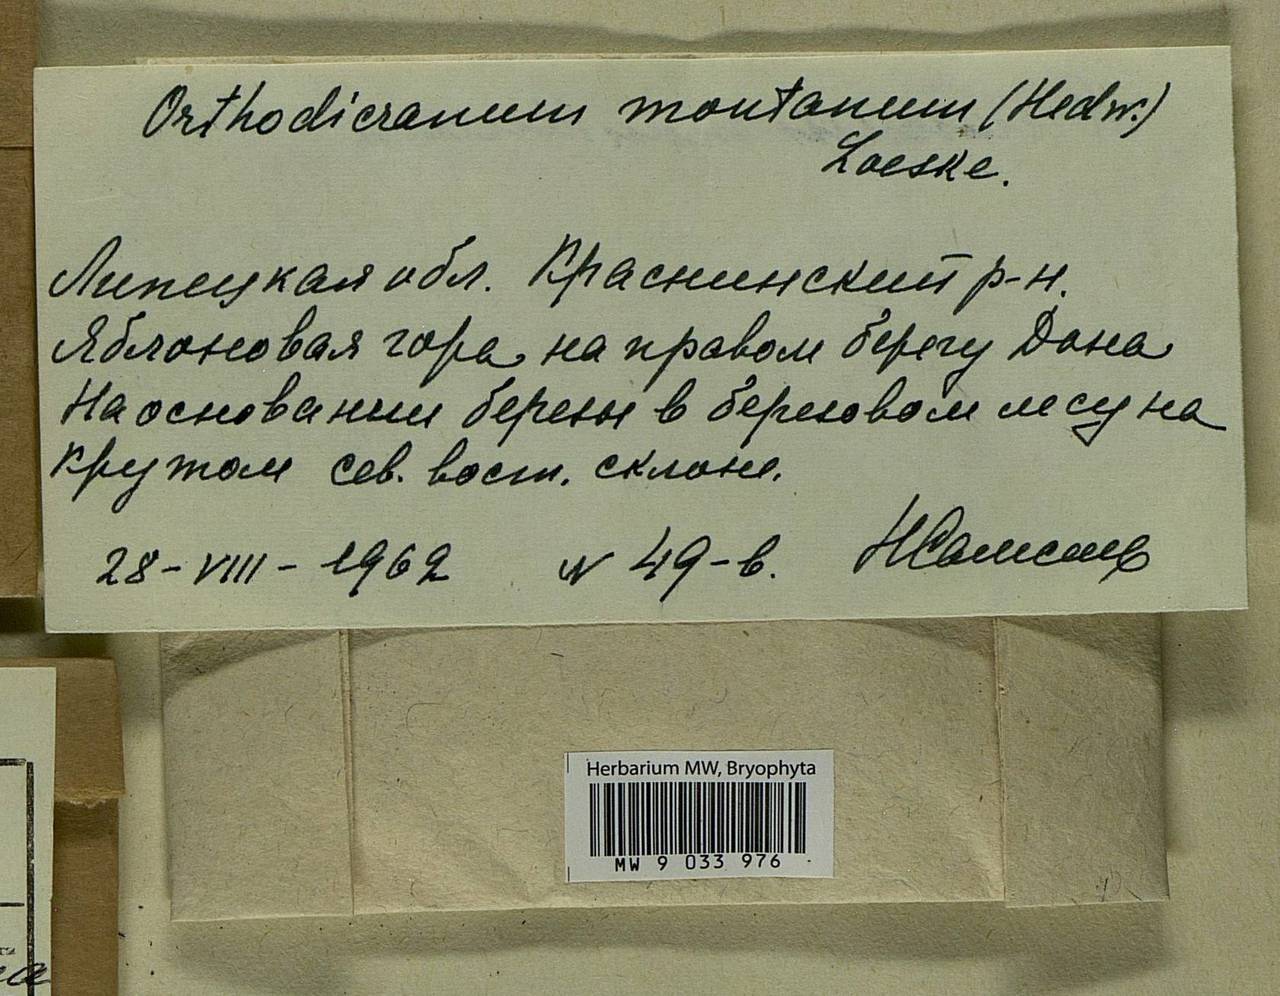 Orthodicranum montanum (Hedw.)
Loeske.
Липецкая обл. Краснинский р-н.
Яблоновая гора на правом берегу Дона
На основании березы в березовом лесу на
крутом сев. вост. склоне.
28-VIII-1962 N 49-в.
Herbarium MW, Bryophyta
MW 9 033 976